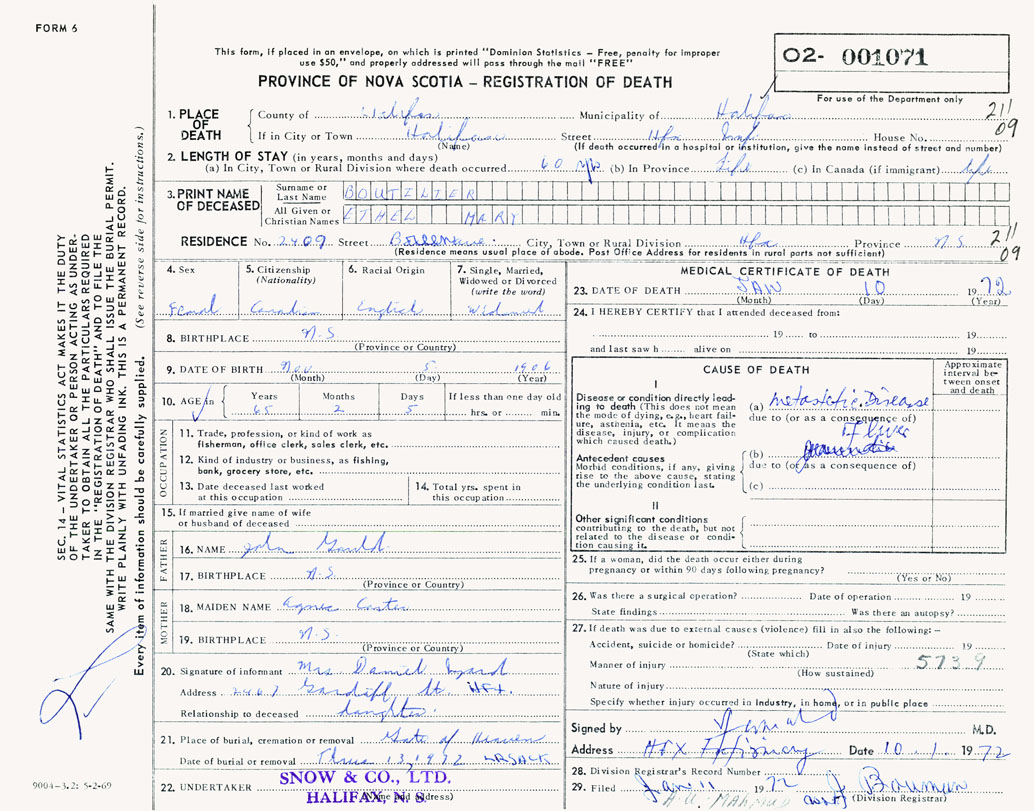 FORM 6
This form, if placed in an envelope, on which is printed "Dominion Statistics - Free, penalty for improper
use $50," and properly addressed will pass through the mail "FREE"
PROVINCE OF NOVA SCOTIA - REGISTRATION OF DEATH
O2- 001071
For use of the Department only
211
09
1. PLACE OF DEATH
County of Halifax Municipality of Halifax
If in City or Town Halifax Street Hfx Inf. House No.
(Name) (If death occurred in a hospital or institution, give the name instead of street and number)
2. LENGTH OF STAY (in years, months and days)
(a) In City, Town or Rural Division where death occurred 60 yrs (b) In Province Life (c) In Canada (if immigrant) Life
3. PRINT NAME OF DECEASED
Surname or Last Name BOUTILIER
All Given or Christian Names ETHEL MARY
RESIDENCE No. 2409 Street City, Town or Rural Division Hfx Province N.S.
(Residence means usual place of abode. Post Office Address for residents in rural parts not sufficient)
211
09
4. Sex
Femal
5. Citizenship
(Nationality)
Canadian
6. Racial Origin
English
7. Single, Married,
Widowed or Divorced
(write the word)
Widowed
8. BIRTHPLACE N.S
(Province or Country)
9. DATE OF BIRTH Nov 5 1906
(Month) (Day) (Year)
10. AGE in Years Months Days If less than one day old
65 2 5 hrs. or min.
OCCUPATION
11. Trade, profession, or kind of work as
fisherman, office clerk, sales clerk, etc.
12. Kind of industry or business, as fishing,
bank, grocery store, etc.
13. Date deceased last worked
at this occupation
14. Total yrs. spent in
this occupation
15. If married give name of wife
or husband of deceased
FATHER
16. NAME John Gould
17. BIRTHPLACE N.S
(Province or Country)
MOTHER
18. MAIDEN NAME Agnes
19. BIRTHPLACE N.S.
(Province or Country)
20. Signature of informant Mrs Daniel
Address 2467 St. HFX.
Relationship to deceased daughter
21. Place of burial, cremation or removal Gate of Heaven
Date of burial or removal Thurs 13, 1972
22. UNDERTAKER (Name and address)
SNOW & CO., LTD.
HALIFAX, N S
MEDICAL CERTIFICATE OF DEATH
23. DATE OF DEATH JAN 10 1972
(Month) (Day) (Year)
24. I HEREBY CERTIFY that I attended deceased from:
19 to 19
and last saw h alive on 19
CAUSE OF DEATH
Approximate
interval be-
tween onset
and death
I
Disease or condition directly lead-
ing to death (This does not mean
the mode of dying, e.g., heart fail-
ure, asthenia, etc. It means the
disease, injury, or complication
which caused death.)
(a) Metastatic Disease
due to (or as a consequence of)
of liver
Antecedent causes
Morbid conditions, if any, giving
rise to the above cause, stating
the underlying condition last.
(b)
due to (or as a consequence of)
(c)
II
Other significant conditions
contributing to the death, but not
related to the disease or condi-
tion causing it.
25. If a woman, did the death occur either during
pregnancy or within 90 days following pregnancy?
(Yes or No)
26. Was there a surgical operation? Date of operation 19
State findings Was there an autopsy?
27. If death was due to external causes (violence) fill in also the following: -
Accident, suicide or homicide? Date of injury 19
(State which)
5739
Manner of injury
(How sustained)
Nature of injury
Specify whether injury occurred in industry, in home, or in public place
Signed by M.D.
Address HFX Infirmary Date 10.1.1972
28. Division Registrar's Record Number
29. Filed Jan 11 1972 J. Bauman
(Division Registrar)
SEC. 14 - VITAL STATISTICS ACT MAKES IT THE DUTY
OF THE UNDERTAKER OR PERSON ACTING AS UNDER-
TAKER TO OBTAIN ALL THE PARTICULARS REQUIRED
IN THE "REGISTRATION OF DEATH" AND TO FILE THE
SAME WITH THE DIVISION REGISTRAR WHO SHALL ISSUE THE BURIAL PERMIT.
WRITE PLAINLY WITH UNFADING INK. THIS IS A PERMANENT RECORD.
Every item of information should be carefully supplied. (See reverse side for instructions.)
9004-3.2: 5-2-69